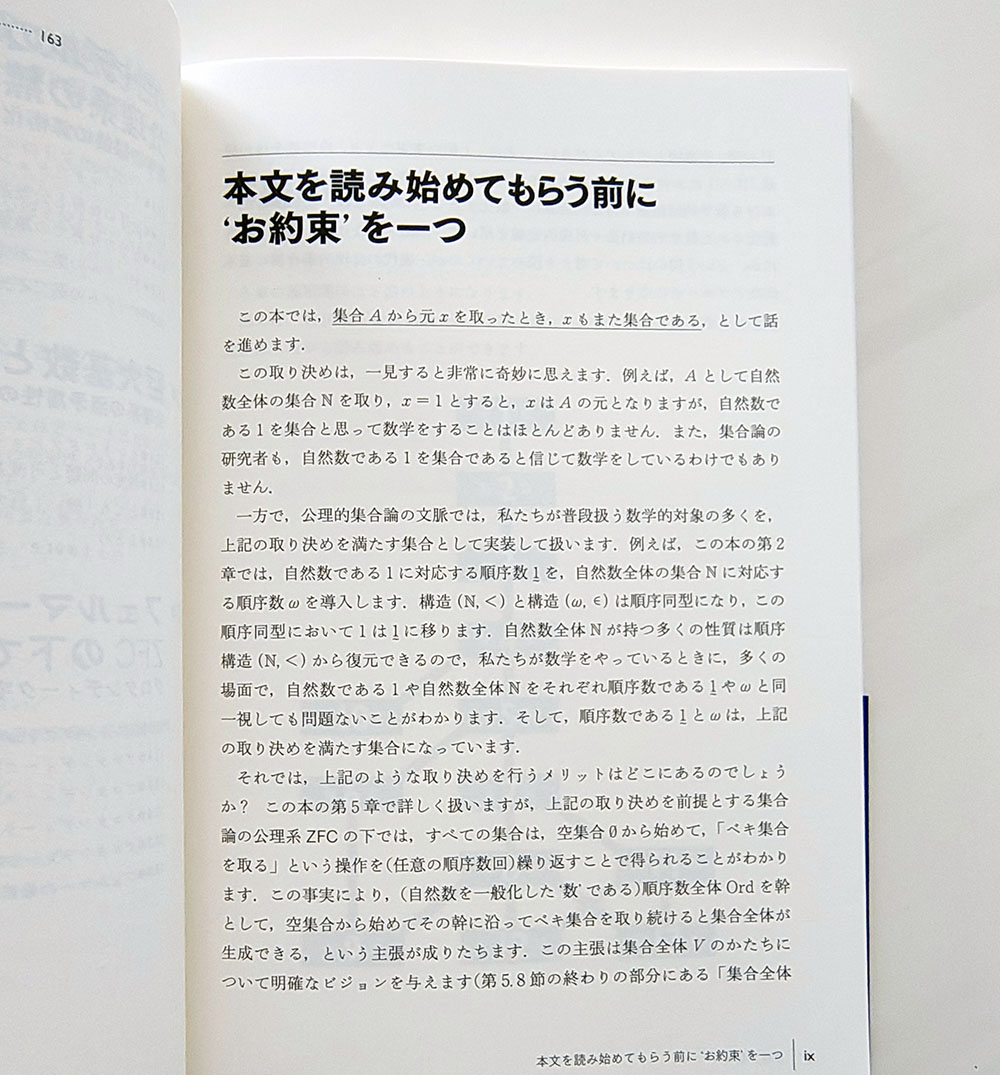 163
本文を読み始めてもらう前に
‘お約束’を一つ
この本では，集合 A から元 x を取ったとき，x もまた集合である，として話
を進めます．
この取り決めは，一見すると非常に奇妙に思えます．例えば，A として自然
数全体の集合 N を取り，x＝1 とすると，x は A の元となりますが，自然数で
ある 1 を集合と思って数学をすることはほとんどありません．また，集合論の
研究者も，自然数である 1 を集合であると信じて数学をしているわけでもあり
ません．
一方で，公理的集合論の文脈では，私たちが普段扱う数学的対象の多くを，
上記の取り決めを満たす集合として実装して扱います．例えば，この本の第 2
章では，自然数である 1 に対応する順序数 1 を，自然数全体の集合 N に対応す
る順序数 ω を導入します．構造 (N, <) と構造 (ω, ∈) は順序同型になり，この
順序同型において 1 は 1 に移ります．自然数全体 N が持つ多くの性質は順序
構造 (N, <) から復元できるので，私たちが数学をやっているときに，多くの
場面で，自然数である 1 や自然数全体 N をそれぞれ順序数である 1 や ω と同
一視しても問題ないことがわかります．そして，順序数である 1 と ω は，上記
の取り決めを満たす集合になっています．
それでは，上記のような取り決めを行うメリットはどこにあるのでしょう
か？ この本の第 5 章で詳しく扱いますが，上記の取り決めを前提とする集合
論の公理系 ZFC の下では，すべての集合は，空集合 ∅ から始めて，「ベキ集合
を取る」という操作を(任意の順序数回)繰り返すことで得られることがわかり
ます．この事実により，(自然数を一般化した‘数’である)順序数全体 Ord を幹
として，空集合から始めてその幹に沿ってベキ集合を取り続けると集合全体が
生成できる，という主張が成りたちます．この主張は集合全体 V のかたちに
ついて明確なビジョンを与えます(第 5.8 節の終わりの部分にある「集合全体
本文を読み始めてもらう前に‘お約束’を一つ ix